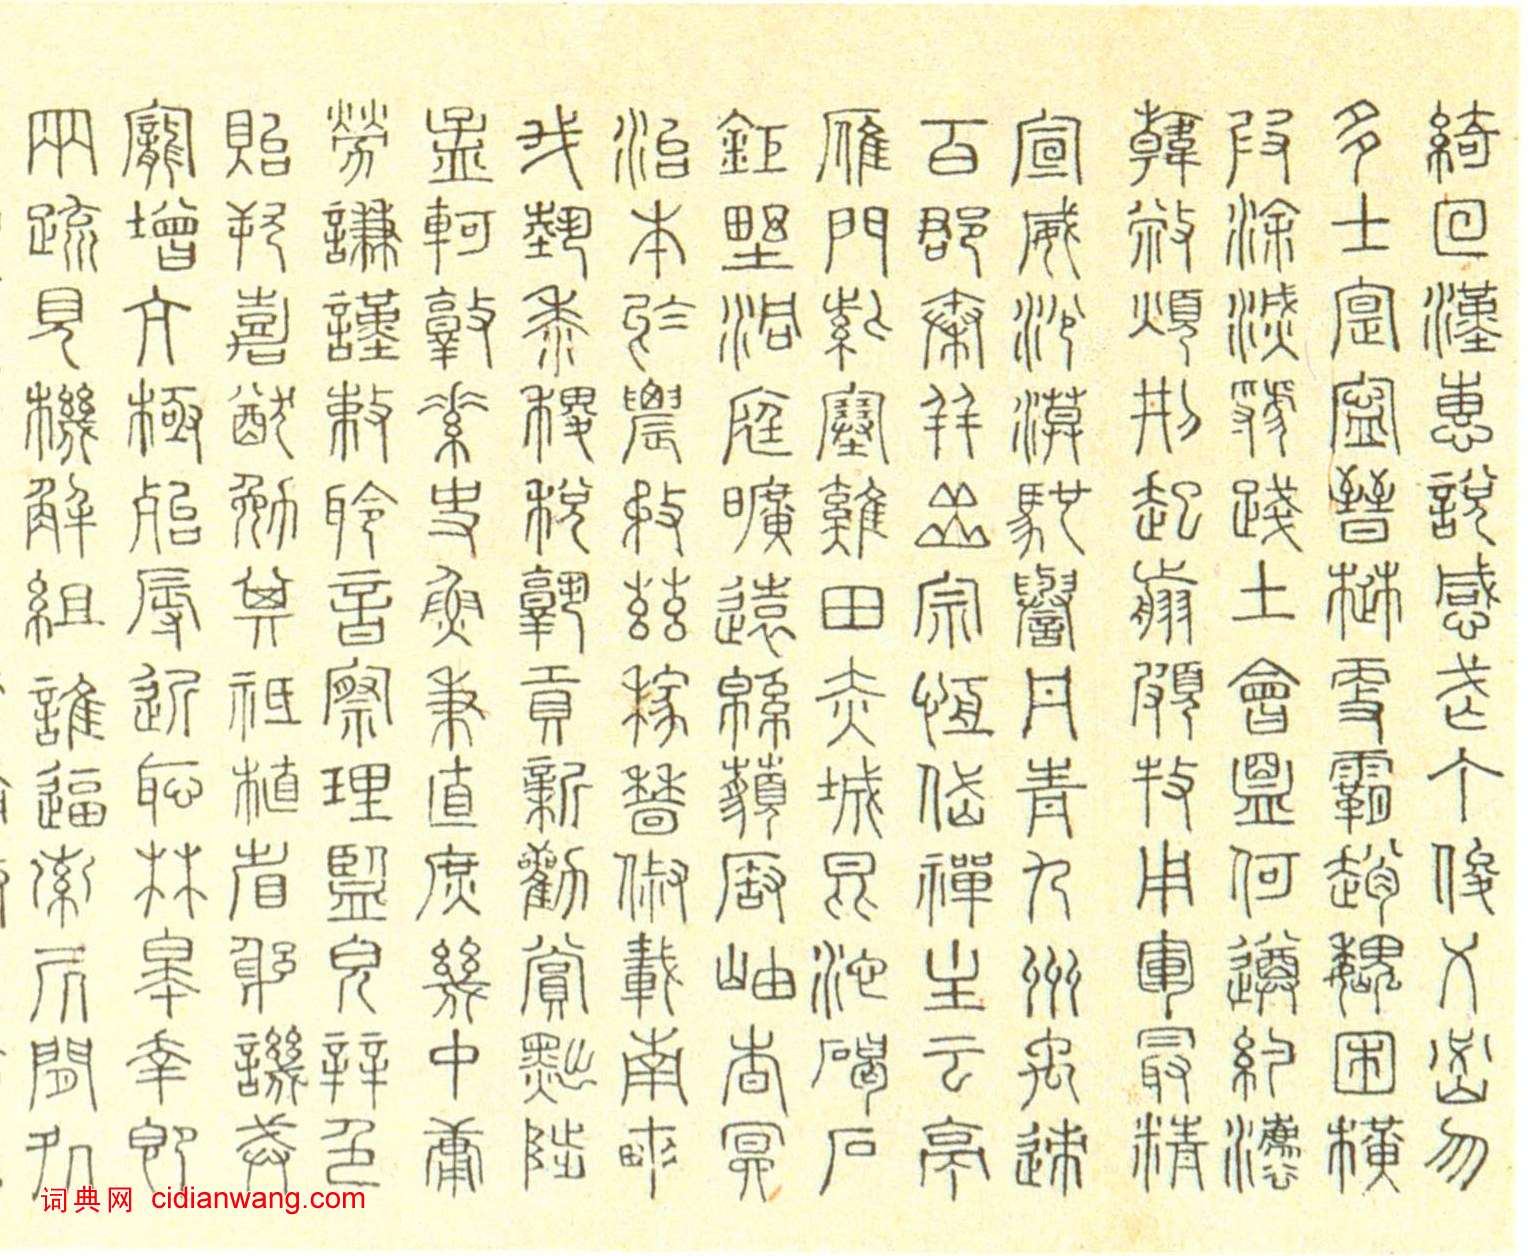 綺回漢惠說感武丁俊乂密勿
多士寔寧晉楚更霸趙魏困橫
假途滅虢踐土會盟何遵約法
韓弊煩刑起翦頗牧用軍最精
宣威沙漠馳譽丹青九州禹跡
百郡秦并岳宗恆岱禪主云亭
雁門紫塞雞田赤城昆池碣石
鉅野洞庭曠遠緜邈巖岫杳冥
治本於農務茲稼穡俶載南畝
我藝黍稷稅熟貢新勸賞黜陟
孟軻敦素史魚秉直庶幾中庸
勞謙謹敕聆音察理監皃辨色
貽厥嘉猷勉其祗植省躬譏誡
寵增亢極殆辱近恥林皋幸即
兩疏見機解組誰逼索居閒處
词典网 cidianwang.com